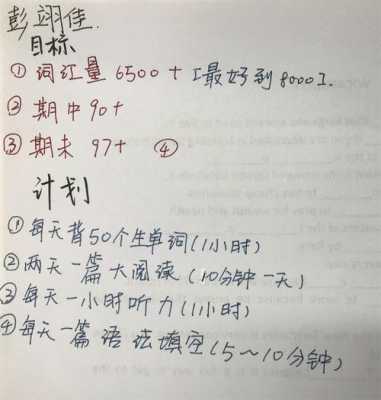 彭翊佳.
目标
① 词汇量 6500+ [最好到8000].
② 期中90+
③ 期末 97+ ④
计划
①每天背50个生单词(1小时)
②两天一篇大阅读(10分钟一天)
③每天一小时听力(1小时)
④每天一篇语法填空(5~10分钟)